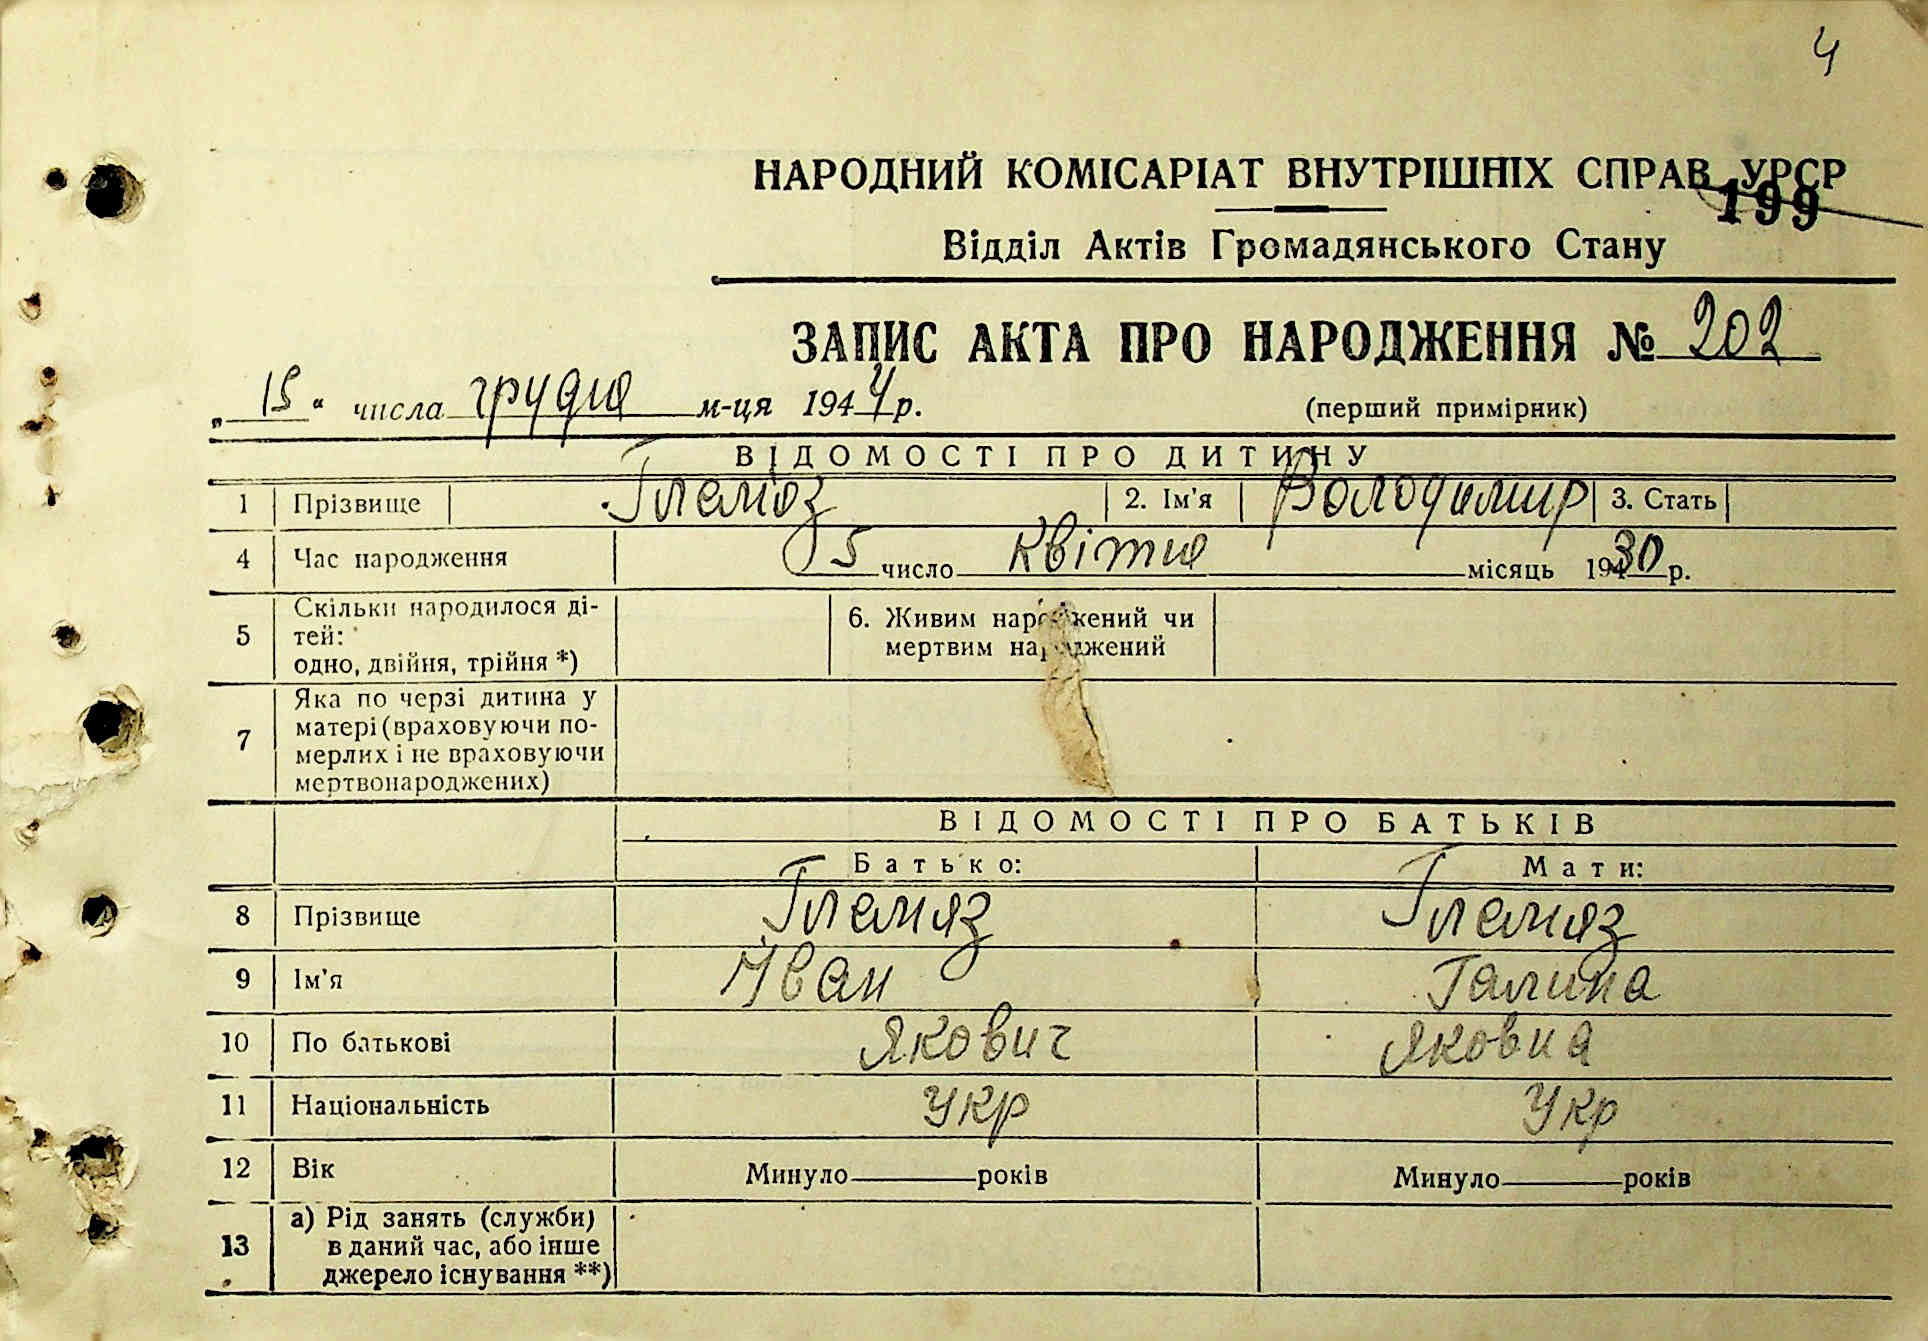 4
НАРОДНИЙ КОМІСАРІАТ ВНУТРІШНІХ СПРАВ УРСР
199
Відділ Актів Громадянського Стану
ЗАПИС АКТА ПРО НАРОДЖЕННЯ № 202
„ 15 “ числа грудня м-ця 1944 р. (перший примірник)
ВІДОМОСТІ ПРО ДИТИНУ
1 Прізвище Глемяз 2. Ім'я Володимир 3. Стать
4 Час народження 5 число квітня місяць 1930 р.
5 Скільки народилося ді-
тей:
одно, двійня, трійня *)
6. Живим народжений чи
мертвим народжений
7 Яка по черзі дитина у
матері (враховуючи по-
мерлих і не враховуючи
мертвонароджених)
ВІДОМОСТІ ПРО БАТЬКІВ
Батько: Мати:
8 Прізвище Глемяз Глемяз
9 Ім'я Іван Галина
10 По батькові Якович Яковна
11 Національність Укр Укр
12 Вік Минуло років Минуло років
13 а) Рід занять (служби)
в даний час, або інше
джерело існування **)